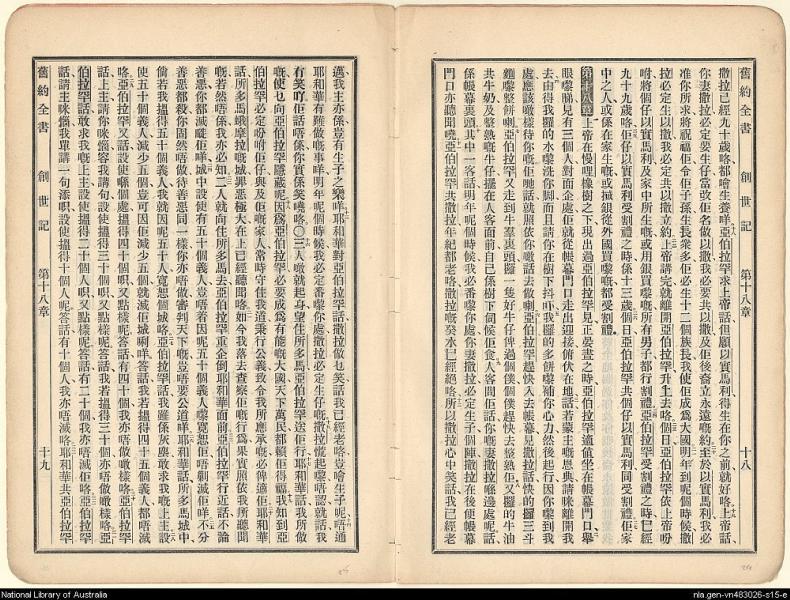 舊約全書 創世記 第十八章 十八
撒拉已經九十歲咯都噲生養咩亞伯拉罕求上帝話但願以實馬利得生在你之前就好咯上帝話
你妻撒拉必定要生仔當改佢名做以撒我必要共以撒及佢後裔立永遠嘅約至於以實馬利我必
准你所求將祝福佢令佢子孫生長衆多佢必生十二個族長我使佢成爲大國明年到呢個時候撒
拉必定生以撒我必定共以撒立約上帝講完就離開亞伯拉罕升上去咯個日亞伯拉罕依上帝吩
咐將個仔以實馬利及家中所生嘅或用銀買嚟嘅所有男子都行割禮亞伯拉罕受割禮之時已經
九十九歲咯佢仔以實馬利受割禮之時係十三歲個日亞伯拉罕共個仔以實馬利同受割禮佢家
中之人或係在家生嘅或搣銀從外國買嚟嘅都受割禮
第十八章 上帝在慢哩橡樹之下現出過亞伯拉罕見正晏晝之時亞伯拉罕適值坐在帳幕門口舉
眼嚟睇見有三個人對面企處佢就從帳幕門口走出迎接俯伏在地話若蒙主嘅恩典請咪離開我
去由得我攞的水嚟洗你脚而且請你在樹下抖吓我攞的多餅嚟補你心力然後起行因你嚟到我
處應該噉樣待你佢哋話就照依你話去做喇亞伯拉罕趕快入去帳幕見撒拉話快的攞三斗
麵嚟整餅喇亞伯拉罕又走到牛羣裏頭攞一隻好牛仔俾過個僕個僕趕快去整熟佢又攞的牛油
共牛奶及整熟嘅牛仔擺在人客面前自己係樹下伺候佢食人客問佢話你嘅妻撒拉喺邊處呢話
係帳幕裏頭其中一客話明年呢個時候我必番嚟你處你妻撒拉必定生子個陣撒拉在後便帳幕
門口亦聽聞嘵亞伯拉罕共撒拉年紀都老咯撒拉嘅癸水已經絕咯所以撒拉心中笑話我已經老
舊約全書 創世記 第十八章 十九
邁我主亦係豈有生子之樂咩耶和華對亞伯拉罕話撒拉做乜笑話我已經老咯豈噲生子呢唔通
耶和華有難做嘅事咩明年呢個時候我必定番嚟你處撒拉必定生仔嘅撒拉慌起嚟唔認就話我
冇笑吖佢話唔係你實係笑嘵咯〇三人噉就起身望住所多馬亞伯拉罕送佢行耶和華話我所做
嘅使乜向亞伯拉罕隱藏呢因爲亞伯拉罕必要成爲有能嘅大國天下萬民都賴佢得福我知到亞
伯拉罕必定吩咐佢仔與及佢嘅家人常時守住我道秉行公義致令我所應承嘅必俾過佢耶和華
話所多馬蛾摩拉嘅城罪惡極大在上已經聽聞咯如今我落去查察佢嘅行爲果實照依我所聽聞
嘅若然唔係我亦必知二人就向住所多馬去亞伯拉罕重企倒耶和華面前亞伯拉罕行近話不論
善惡你都滅嘵佢咩城中設使有五十個義人豈唔若因呢五十個義人嚟寬恕佢唔剿滅佢咩不分
善惡都殺你固然唔做待善惡同一樣你亦唔做審判天下嘅豈唔要公道咩耶和華話所多馬城中
倘若我搵得五十個義人我就因呢五十人寬恕個城咯亞伯拉罕話我雖係灰塵敢求我嘅上主設
使五十個義人減少五個豈可因佢減少五個就滅佢城唎咩答話若我搵得四十五個義人都唔滅
咯亞伯拉罕又話設使喺個處搵得四十個呢又點樣呢答話有四十個我亦唔做噉樣咯亞伯拉罕
話上主請你咪惱容我講句設使搵得三十個呢又點樣呢答話我若搵得三十個亦唔做噉樣咯亞
伯拉罕話敢求我嘅上主設使搵得二十個人呢又點樣呢答話有二十個我亦唔滅佢咯亞伯拉罕
話請主咪惱我單講一句添呢設使搵得十個人呢答話有十個人我亦唔滅咯耶和華共亞伯拉罕
National Library of Australia
nla.gen-vn483026-s15-e